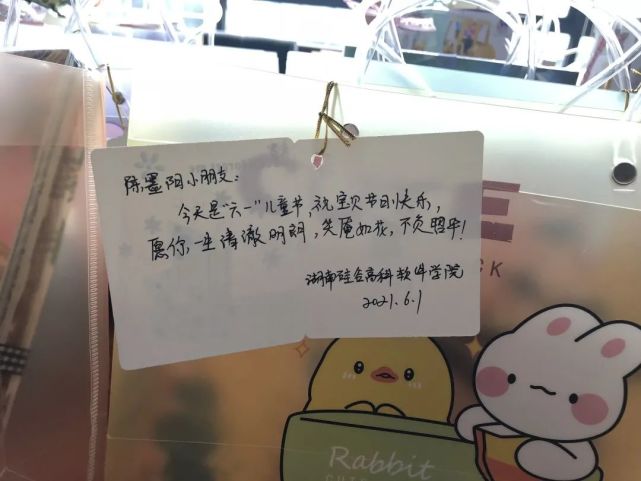 陈墨阳小朋友:
今天是"六一"儿童节,祝宝贝节日快乐,
愿你,一生清澈明朗,笑靥如花,不负韶华!
湖南硅谷高科软件学院
2021.6.1
Rabbit